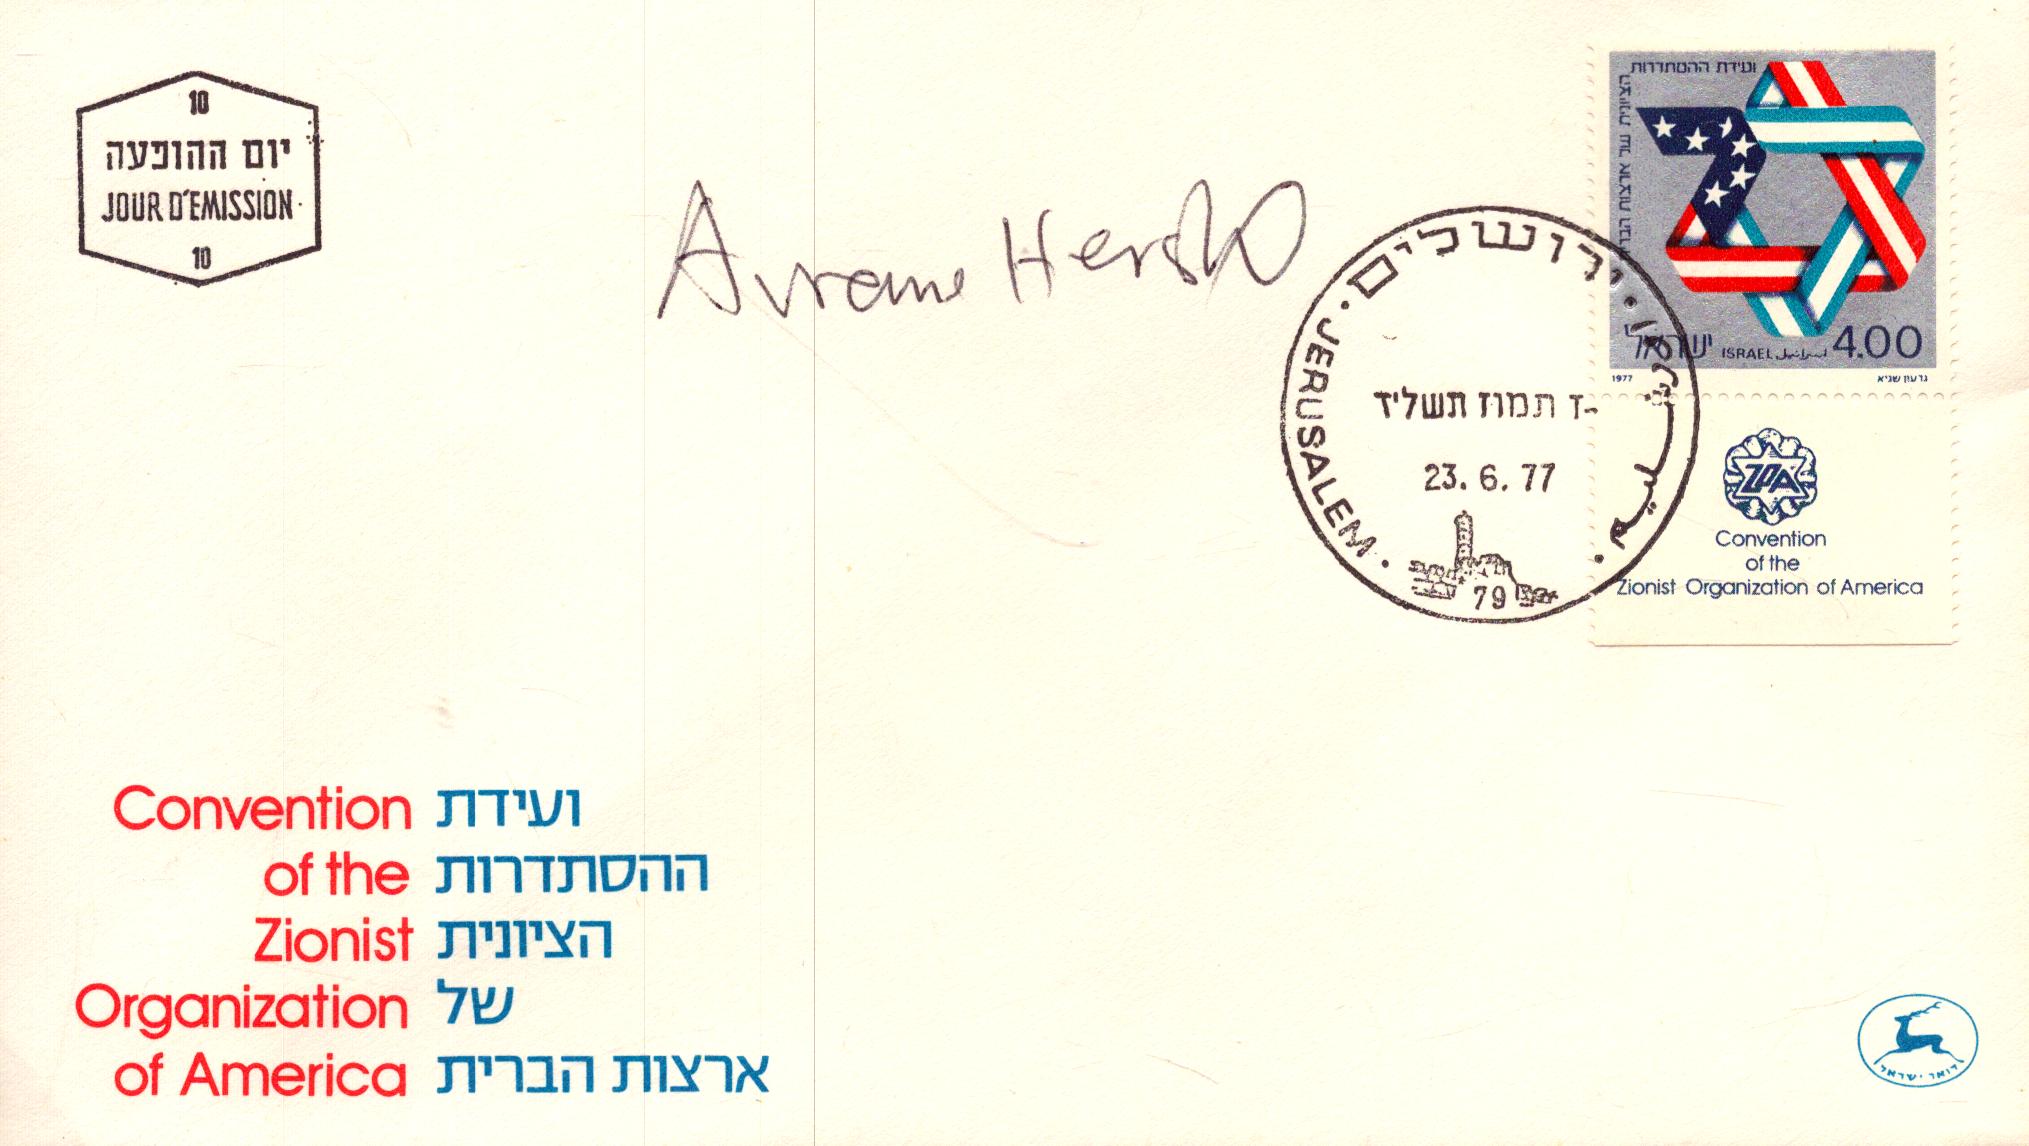 10
יום ההופעה
JOUR D'EMISSION
10
Avrame Hersko
ועידת ההסתדרות
ישראל ISRAEL اسرائيل 4.00
1977 גדעון שגיא
ירושלים
JERUSALEM
ז- תמוז תשל״ז
23.6.77
79
ZOA
Convention
of the
Zionist Organization of America
Convention ועידת
of the ההסתדרות
Zionist הציונית
Organization של
of America ארצות הברית
דואר ישראל